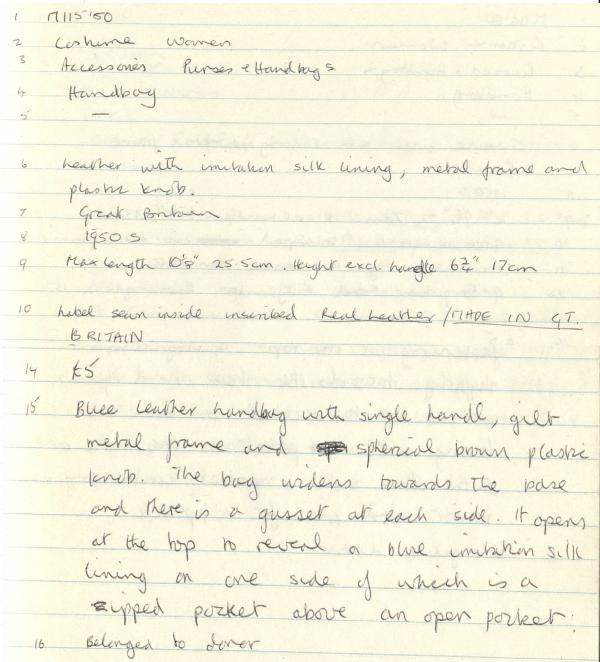 1 M115'50
2 Costume Women
3 Accessories Purses + Handbags
4 Handbag
5 —
6 Leather with imitation silk lining, metal frame and
plastic knob.
7 Great Britain
8 1950s
9 Max length 10½" 25.5cm. Height excl. handle 6¾" 17cm
10 Label sewn inside inscribed Real Leather / MADE IN GT.
BRITAIN
14 £5
15 Blue leather handbag with single handl, gilt
metal frame and spherical brown plastic
knob. The bag widens towards the base
and there is a gusset at each side. It opens
at the top to reveal a blue imitation silk
lining on one side of which is a
zipped pocket above an open pocket.
16 Belonged to donor